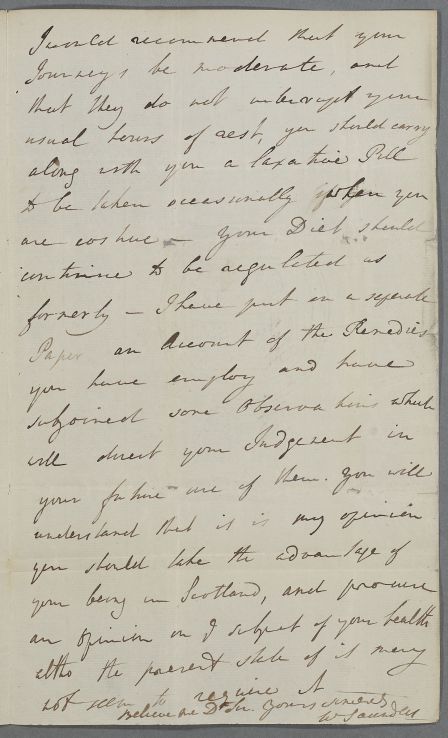 I would recommend that your
Journeys be moderate, and
that they do not interrupt your
usual hours of rest, you should carry
along with you a laxative Pill
to be taken occasionally when you
are costive – Your Diet should
continue to be regulated as
formerly – I have put on a separate
Paper an Account of the Remedies
you have employ and have
subjoined some Observations which
will direct your Judgement in
your future use of them. You will
understand that it is my opinion
you should take the advantage of
your being in Scotland, and procure
an opinion on subject of your health
altho the present state of it may
not seem to require it
believe me Dr Sir Yours sincerely
W Saunders